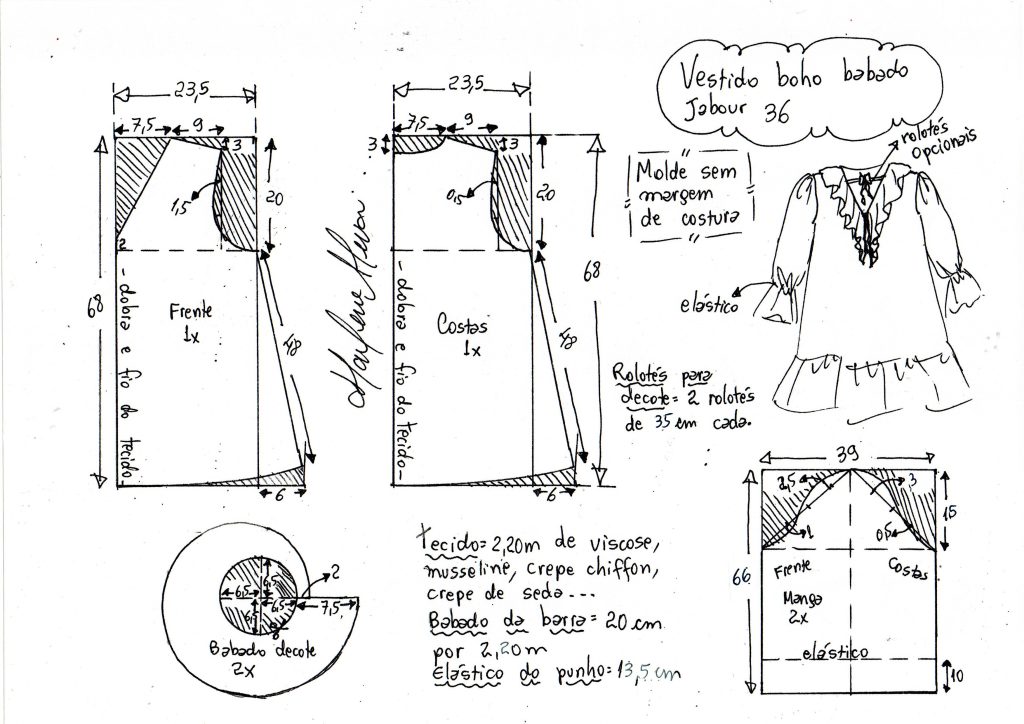 Vestido boho babado
Jabour 36
rolotés
opcionais
Molde sem
margem
de costura
elástico
23,5
7,5
9
3
1,5
20
2
68
Frente
1x
- dobra e fio do tecido-
48
6
23,5
7,5
9
3
3
0,5
20
68
Costas
1x
- dobra e fio do tecido-
48
6
Rolotés para
decote= 2 rolotés
de 35 cm cada.
39
2,5
3
1
0,5
15
66
Frente
Costas
Manga
2x
elástico
10
6,5
6,5
6,5
6,5
2
7,5
Babado decote
2x
tecido= 2,20m de viscose,
musseline, crepe chiffon,
crepe de seda...
Babado da barra= 20 cm
por 2,20m
Elástico do punho= 13,5 cm